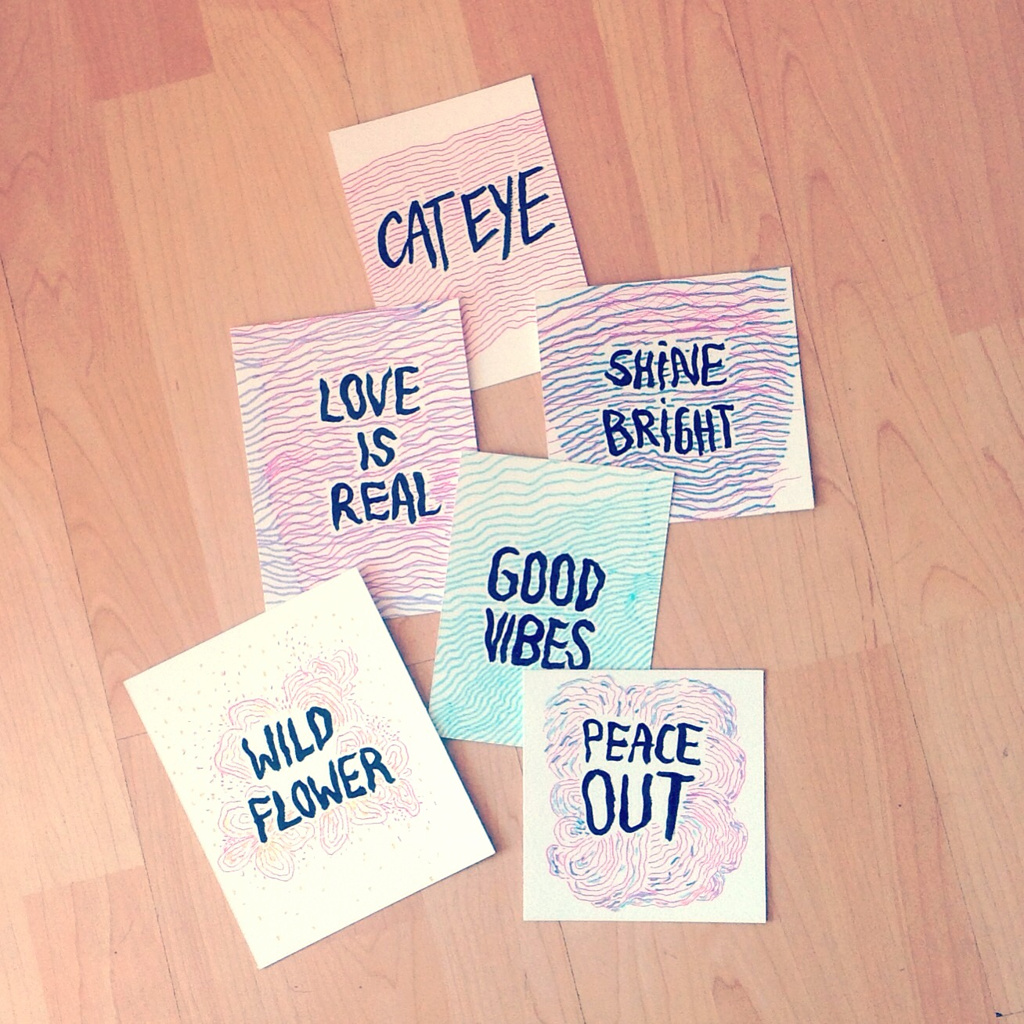 CAT EYE
LOVE
IS
REAL
SHiNE
BRiGHT
GOOD
VIBES
WILD
FLOWER
PEACE
OUT